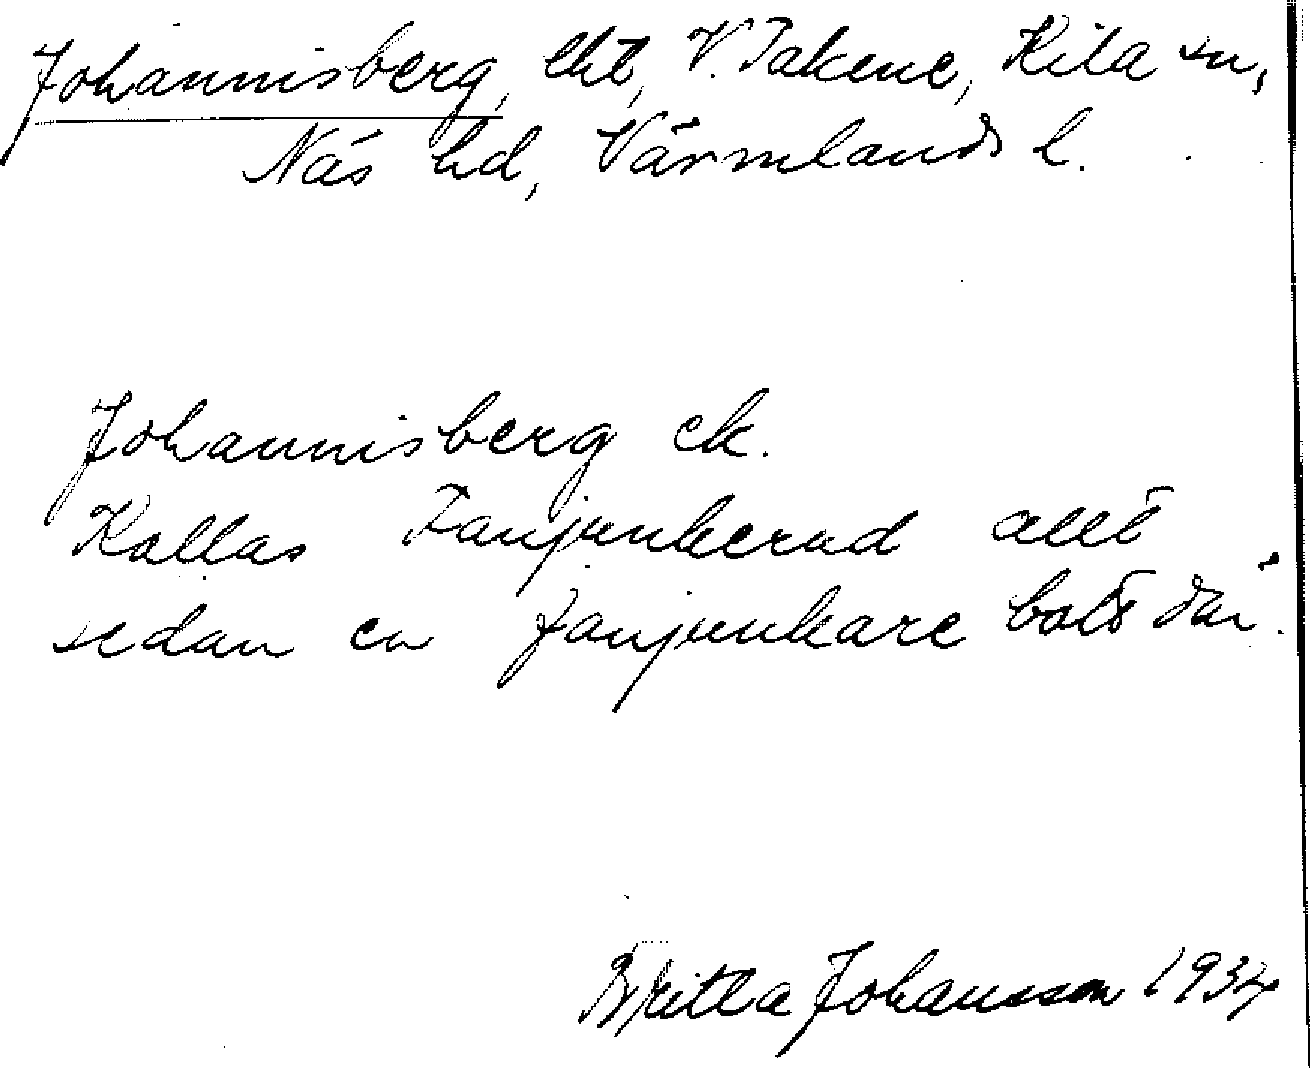 Johannisberg, lht, V. Takene, Kila sn,
Näs hd, Värmlands l.
Johannisberg ek.
Kallas Fanjunkerud allt
sedan en fanjunkare bott där.
Britta Johansson 1934